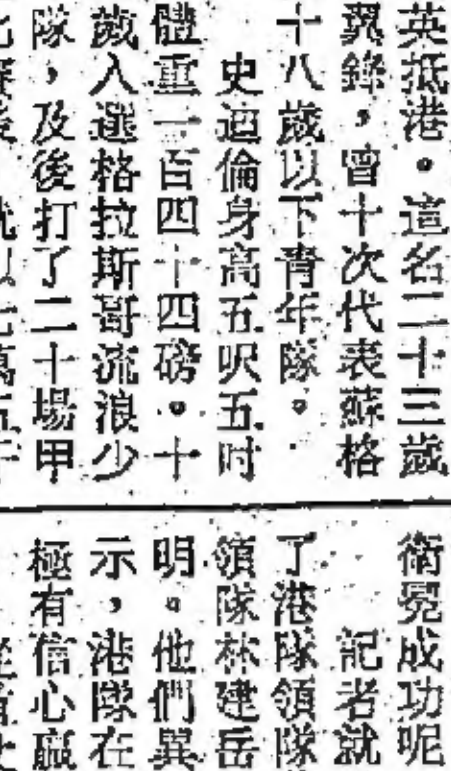 英抵港。這名二十三歲
翼鋒，曾十次代表蘇格
十八歲以下青年隊。
史迪倫身高五呎五吋
體重一百四十四磅。十
歲入選格拉斯哥流浪少
隊，及後打了二十場甲
衛冕成功呢
記者就
了港隊領隊
領隊林建岳
明。他們異
示，港隊在
極有信心贏